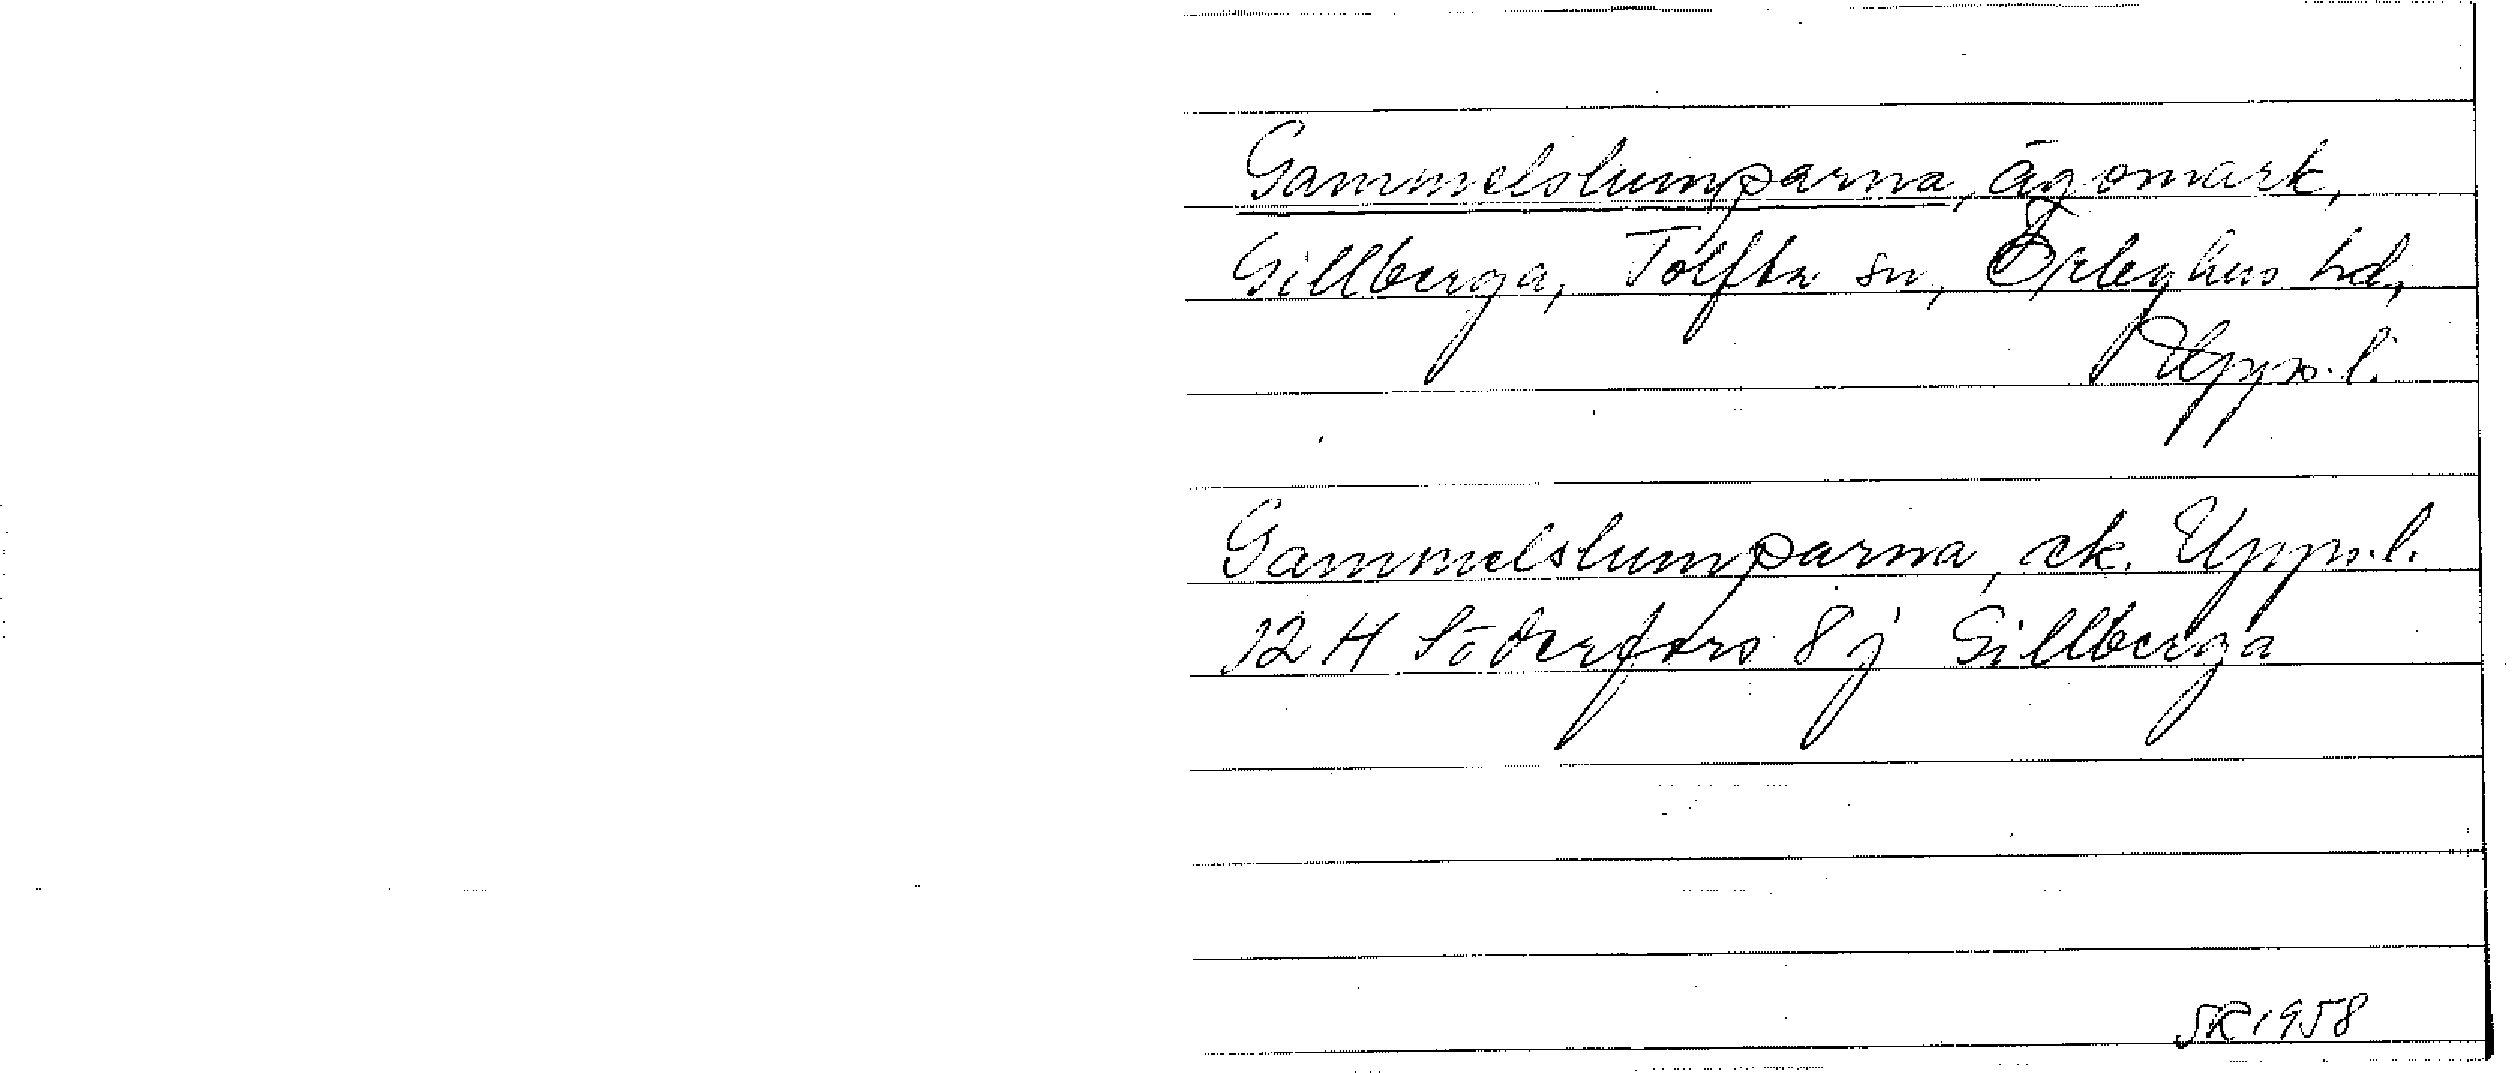 Gammelslumparna, ägomark,
Gillberga, Tolfta sn, Örbyhus hd,
Upps. l.
Gammelslumparna, ek. Upps. l.
12 H Söderfors 8 j Gillberga
SR 1958